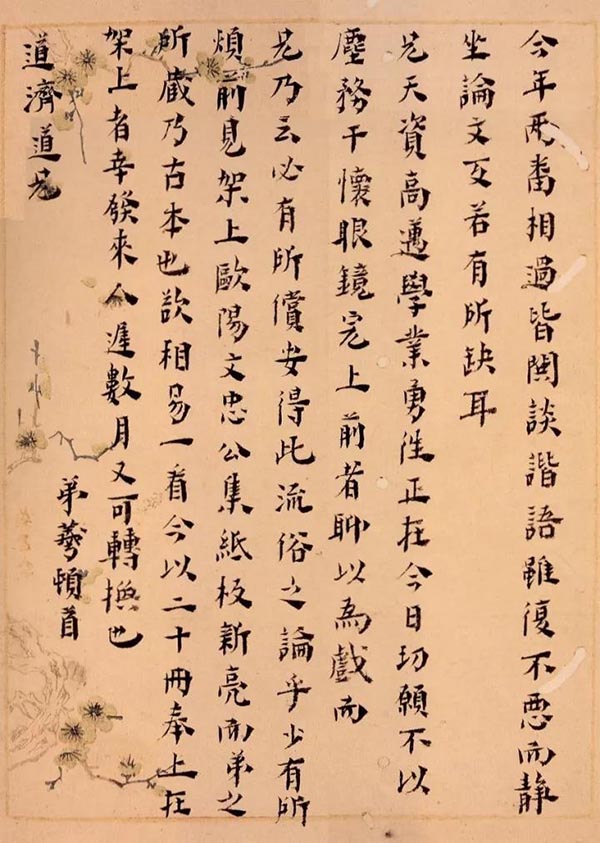 今年兩番相過皆閒談諧語雖復不惡而靜
坐論文反若有所缺耳
兄天資高邁學業勇往正在今日切願不以
塵務干懷眼鏡完上前者聊以為戲而
兄乃云必有所償安得此流俗之論乎少有所
煩前見架上歐陽文忠公集紙板新亮而弟之
所藏乃古本也欲相易一看今以二十冊奉上在
架上者幸發來人遲數月又可轉換也
弟頓首
道濟道兄